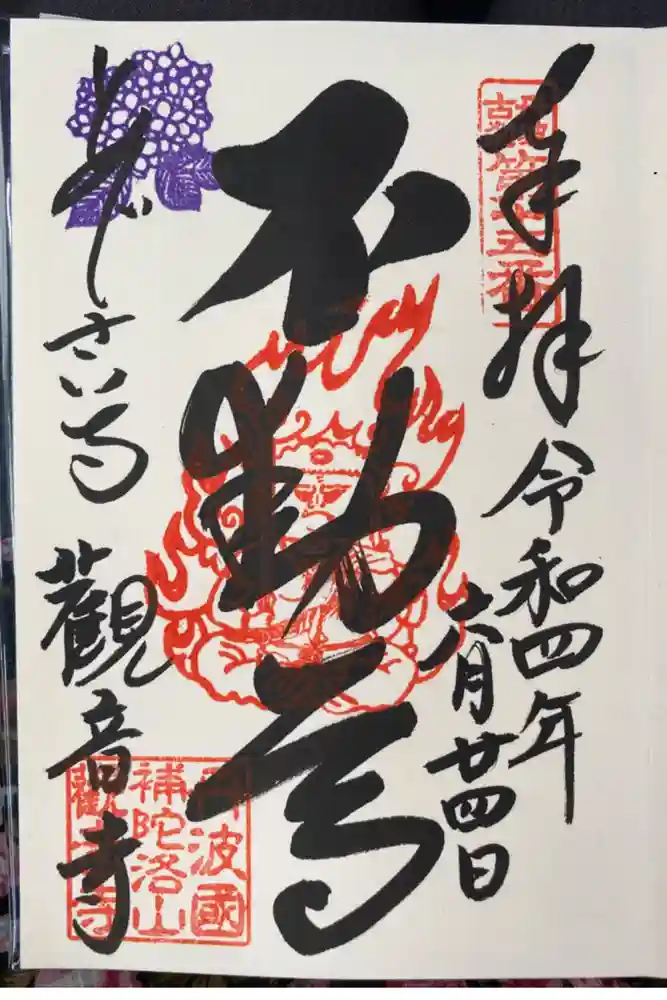 奉拝
令和四年
六月廿四日
不動尊
あじさい寺
觀音寺
丹波國
補陀洛山
觀音寺